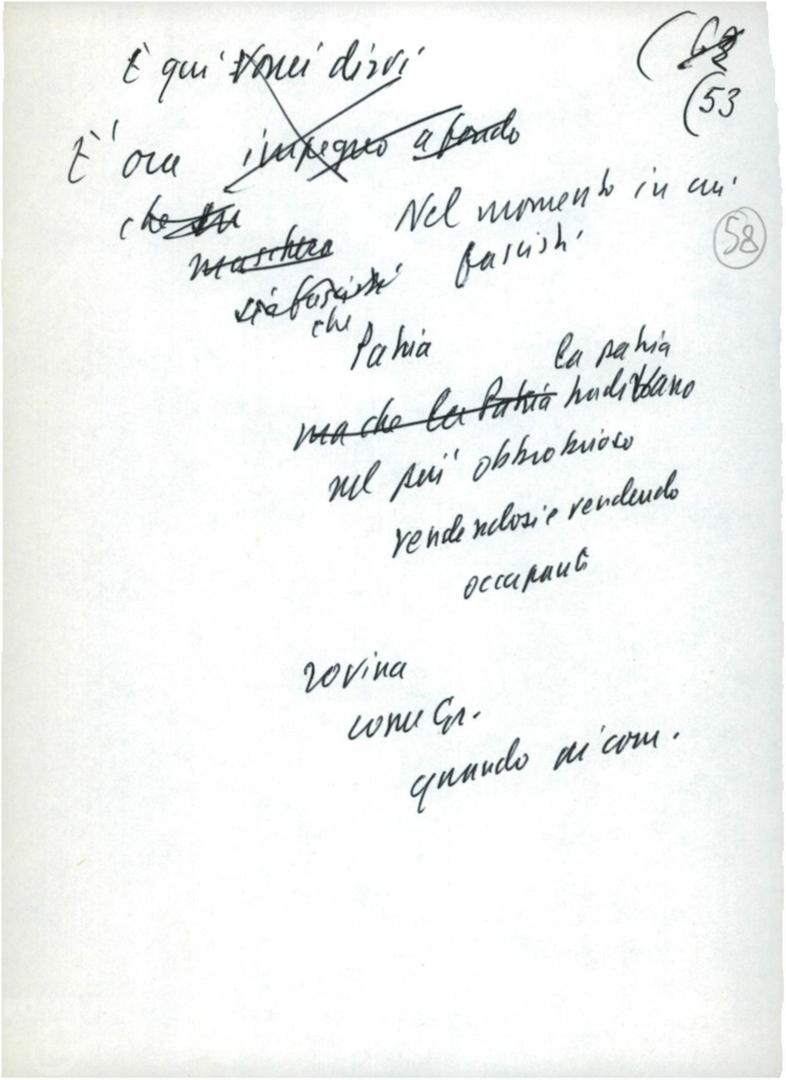 È qui vorrei dirvi
(53
E' ora impegno a fondo
che
Nel momento in cui
58
maschera
fascisti
che
Patria
la patria
ma che la Patria tradivano
nel più obbrobrioso
rendendosi e rendendo
occupanti
rovina
come Gr.
quando ai com.